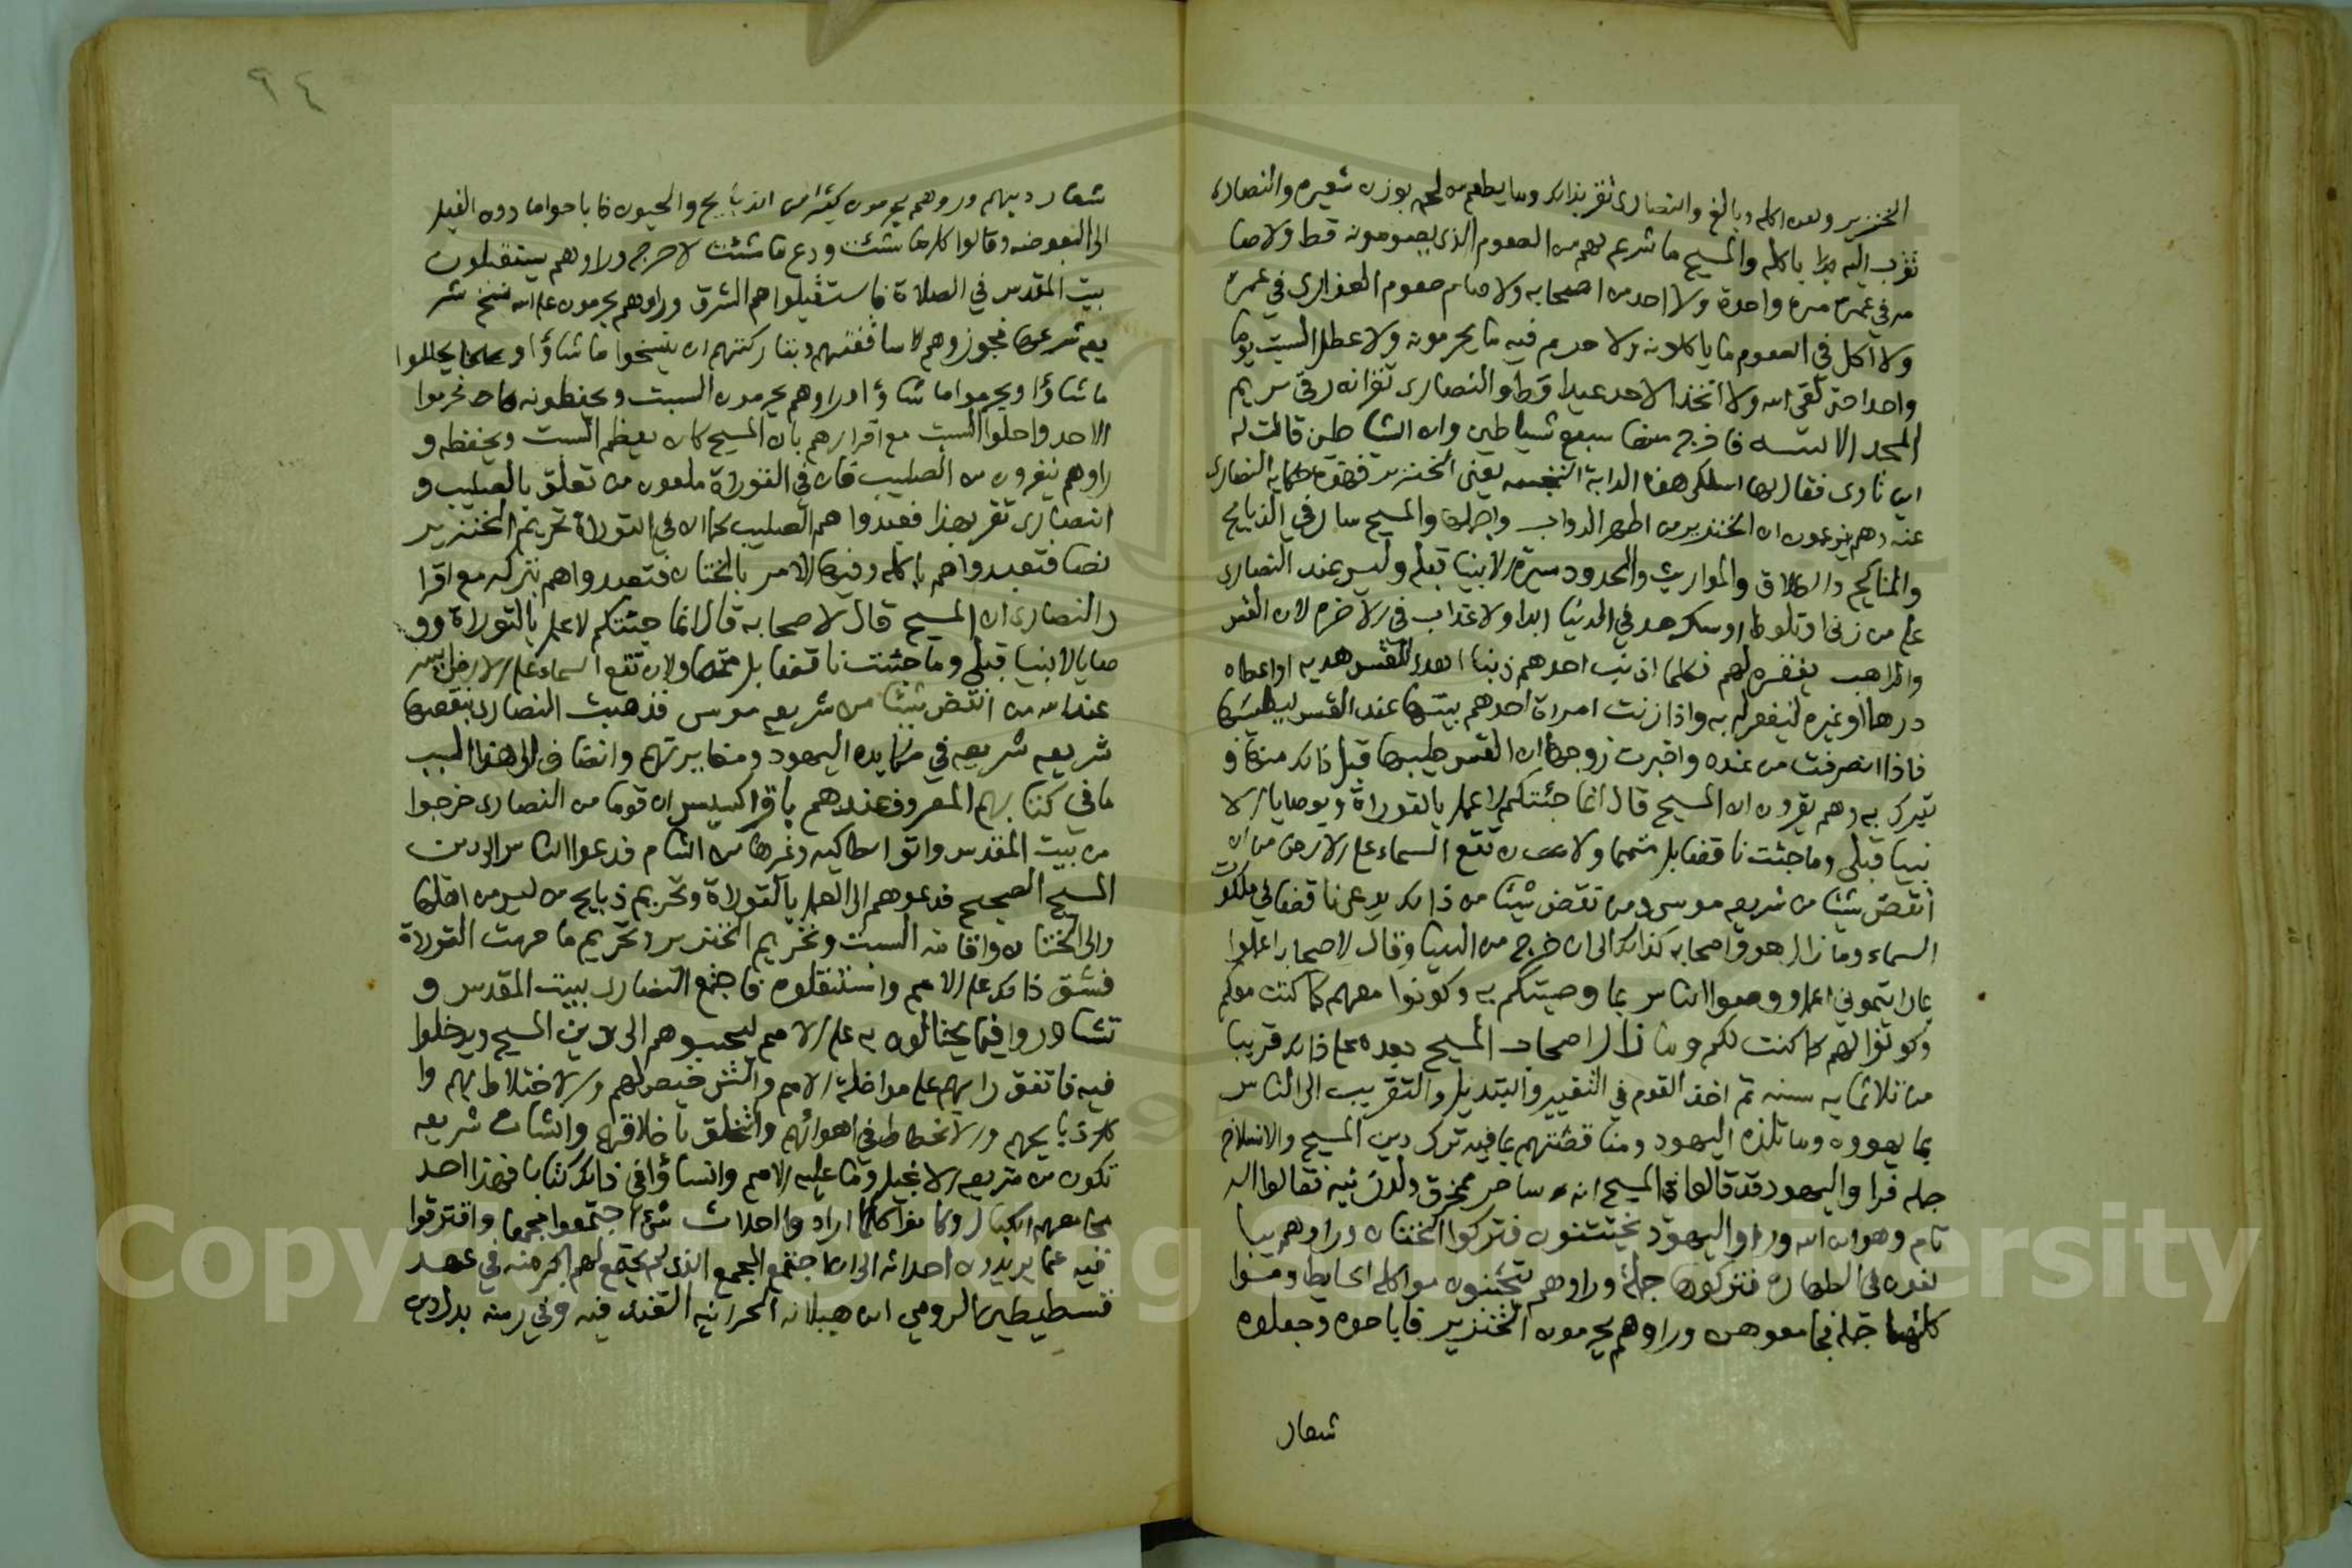 الخنزير ولعن اكله وبالغ والنصارى تقر بذلك وما يطعم من لحمه بوزن شعيره والنصارى
تقرب اليه باكله والمسيح ما شرع لهم من الصوم الذي يصومونه قط ولا صا
مه في عمره مرة واحدة ولا احد من اصحابه ولا صام صوم العذارى في عمره
ولا اكل في الصوم ما ياكلونه ولا حرم فيه ما يحرمونه ولا عطل السبت يوما
واحدا حتى لقى الله ولا اتخذ الاحد عيدا قط والنصارى تقر انه رقى مريم
المجدلانيه فاخرج منها سبع شياطين وان الشياطين قالت له
اين ناوى فقال لها اسلكى هذه الدابة النجسه يعني الخنزير فهذه حكايه النصارى
عنه وهم يزعمون ان الخنزير من اطهر الدواب واجملها والمسيح سار في الذبايح
والمناكح والطلاق والمواريث والحدود سيرة الانبيا قبله وليس عند النصارى
على من زنى او تلوط او سكر حد في الدنيا ابدا ولا عذاب في الاخره لان القس
والراهب يغفره لهم فكلما اذنب احدهم ذنبا اهدى للقس هديه او اعطاه
درهما او غيره ليغفر له به واذا زنت امراة احدهم بيتها عند القس ليطيبها
فاذا انصرفت من عنده واخبرت زوجها ان القس طيبها قبل ذلك منها و
تبرك به وهم يقرون ان المسيح قال انما جئتكم لاعمل بالتوراة وبوصايا الا
نبيا قبلي وما جئت ناقضا بل متمما ولان تقع السماء على الارض من ان
انقض شيئا من شريعه موسى ومن نقض شيئا من ذلك يدعى ناقضا في ملكوت
السماء وما زال هو واصحابه كذلك الى ان خرج من الدنيا وقال لاصحابه اعملوا
بما رايتموني اعمل ووصوا الناس بما وصيتكم به وكونوا معهم كما كنت معكم
وكونوا لهم كما كنت لكم وما زال اصحاب المسيح بعده على ذلك قريبا
من ثلاثمايه سنه ثم اخذ القوم في التغيير والتبديل والتقرب الى الناس
بما يهوون ومكايدة اليهود ومناقضتهم بما فيه ترك دين المسيح والانسلاخ
جمله فراوا اليهود قد قالوا في المسيح انه ساحر ممخرق ولد زنيه فقالوا اله
تام وهو ابن الله وراوا اليهود يختتنون فتركوا الختان وراوهم يبا
لغون في الطهاره فتركوها جملة وراوهم يتجنبون مواكله الحايض
جمله فجامعوهن وراوهم يحرمون الخنزير فاباحوه وجعلوه
شعار
٩٤
شعار دينهم وراوهم يحرمون كثيرا من الذبايح والحيوان فاباحوا ما دون الفيل
الى البعوضه وقالوا كل ما شئت ودع ما شئت لا حرج وراوهم يستقبلون
بيت المقدس في الصلاة فاستقبلوا هم الشرق وراوهم يحرمون على الله نسخ شر
يعه شرعها فجوزوا هم لاساقفتهم وبتاركتهم ان ينسخوا ما شاؤا ويحللوا
ما شاؤا ويحرموا ما شاؤا وراوهم يحرمون السبت ويحفظونه فحرموا
الاحد واحلوا السبت مع اقرارهم بان المسيح كان يعظم السبت ويحفظه و
راوهم ينفرون من الصليب فان في التوراة ملعون من تعلق بالصليب و
النصارى تقر بهذا فعبدوا هم الصليب كما ان في التوراة تحريم الخنزير
نصا فتعبدوا هم باكله وفيها الامر بالختان فتعبدوا هم بتركه مع اقرا
ر النصارى ان المسيح قال لاصحابه قال انما جئتكم لاعمل بالتوراة وو
صايا الانبيا قبلي وما جئت ناقضا بل متمما ولان تقع السماء على الارض ايسر
عند الله من ان انقض شيئا من شريعه موسى فذهبت النصارى تنقضها
شريعه شريعه في مكايده اليهود ومغايرتهم وانضاف الى هذا السبب
ما في كتابهم المعروف عندهم بافراكسيس ان قوما من النصارى خرجوا
من بيت المقدس واتوا انطاكيه وغيرها من الشام فدعوا الناس الى دين
المسيح الصحيح فدعوهم الى العمل بالتوراة وتحريم ذبايح من ليس من اهلها
والى الختان واقامه السبت وتحريم الخنزير وتحريم ما حرمت التوراة
فشق ذلك على الامم واستثقلوه فاجتمع النصارى ببيت المقدس و
تشاوروا فيما يحتالون به على الامم ليحببوهم الى دين المسيح ويدخلوا
فيه فاتفق رايهم على مداخلة الامم والترخيص لهم والاختلاط بهم وا
كل ذبايحهم والانحطاط في اهوائهم والتخلق باخلاقهم وانشات شريعه
تكون من شريعه الانجيل وما عليه الامم وانشاؤا في ذلك كتابا فهذا احد
مجامعهم الكبار وكانوا كلما ارادوا احداث شيء اجتمعوا مجمعا وافترقوا
فيه عما يريدون احداثه الى ان اجتمع المجمع الذي لم يجتمع لهم اكبر منه في عهد
قسطنطين الرومي ابن هيلانه الحرانيه الفندقيه وفي زمنه بدل دين